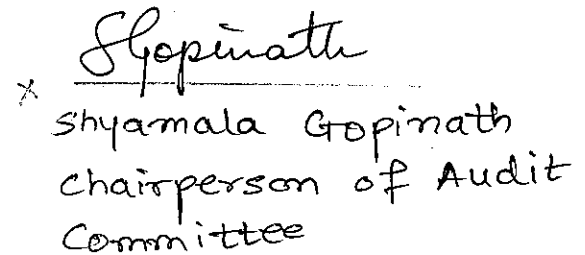 SGopinath
x
Shyamala Gopinath
Chairperson of Audit
Committee